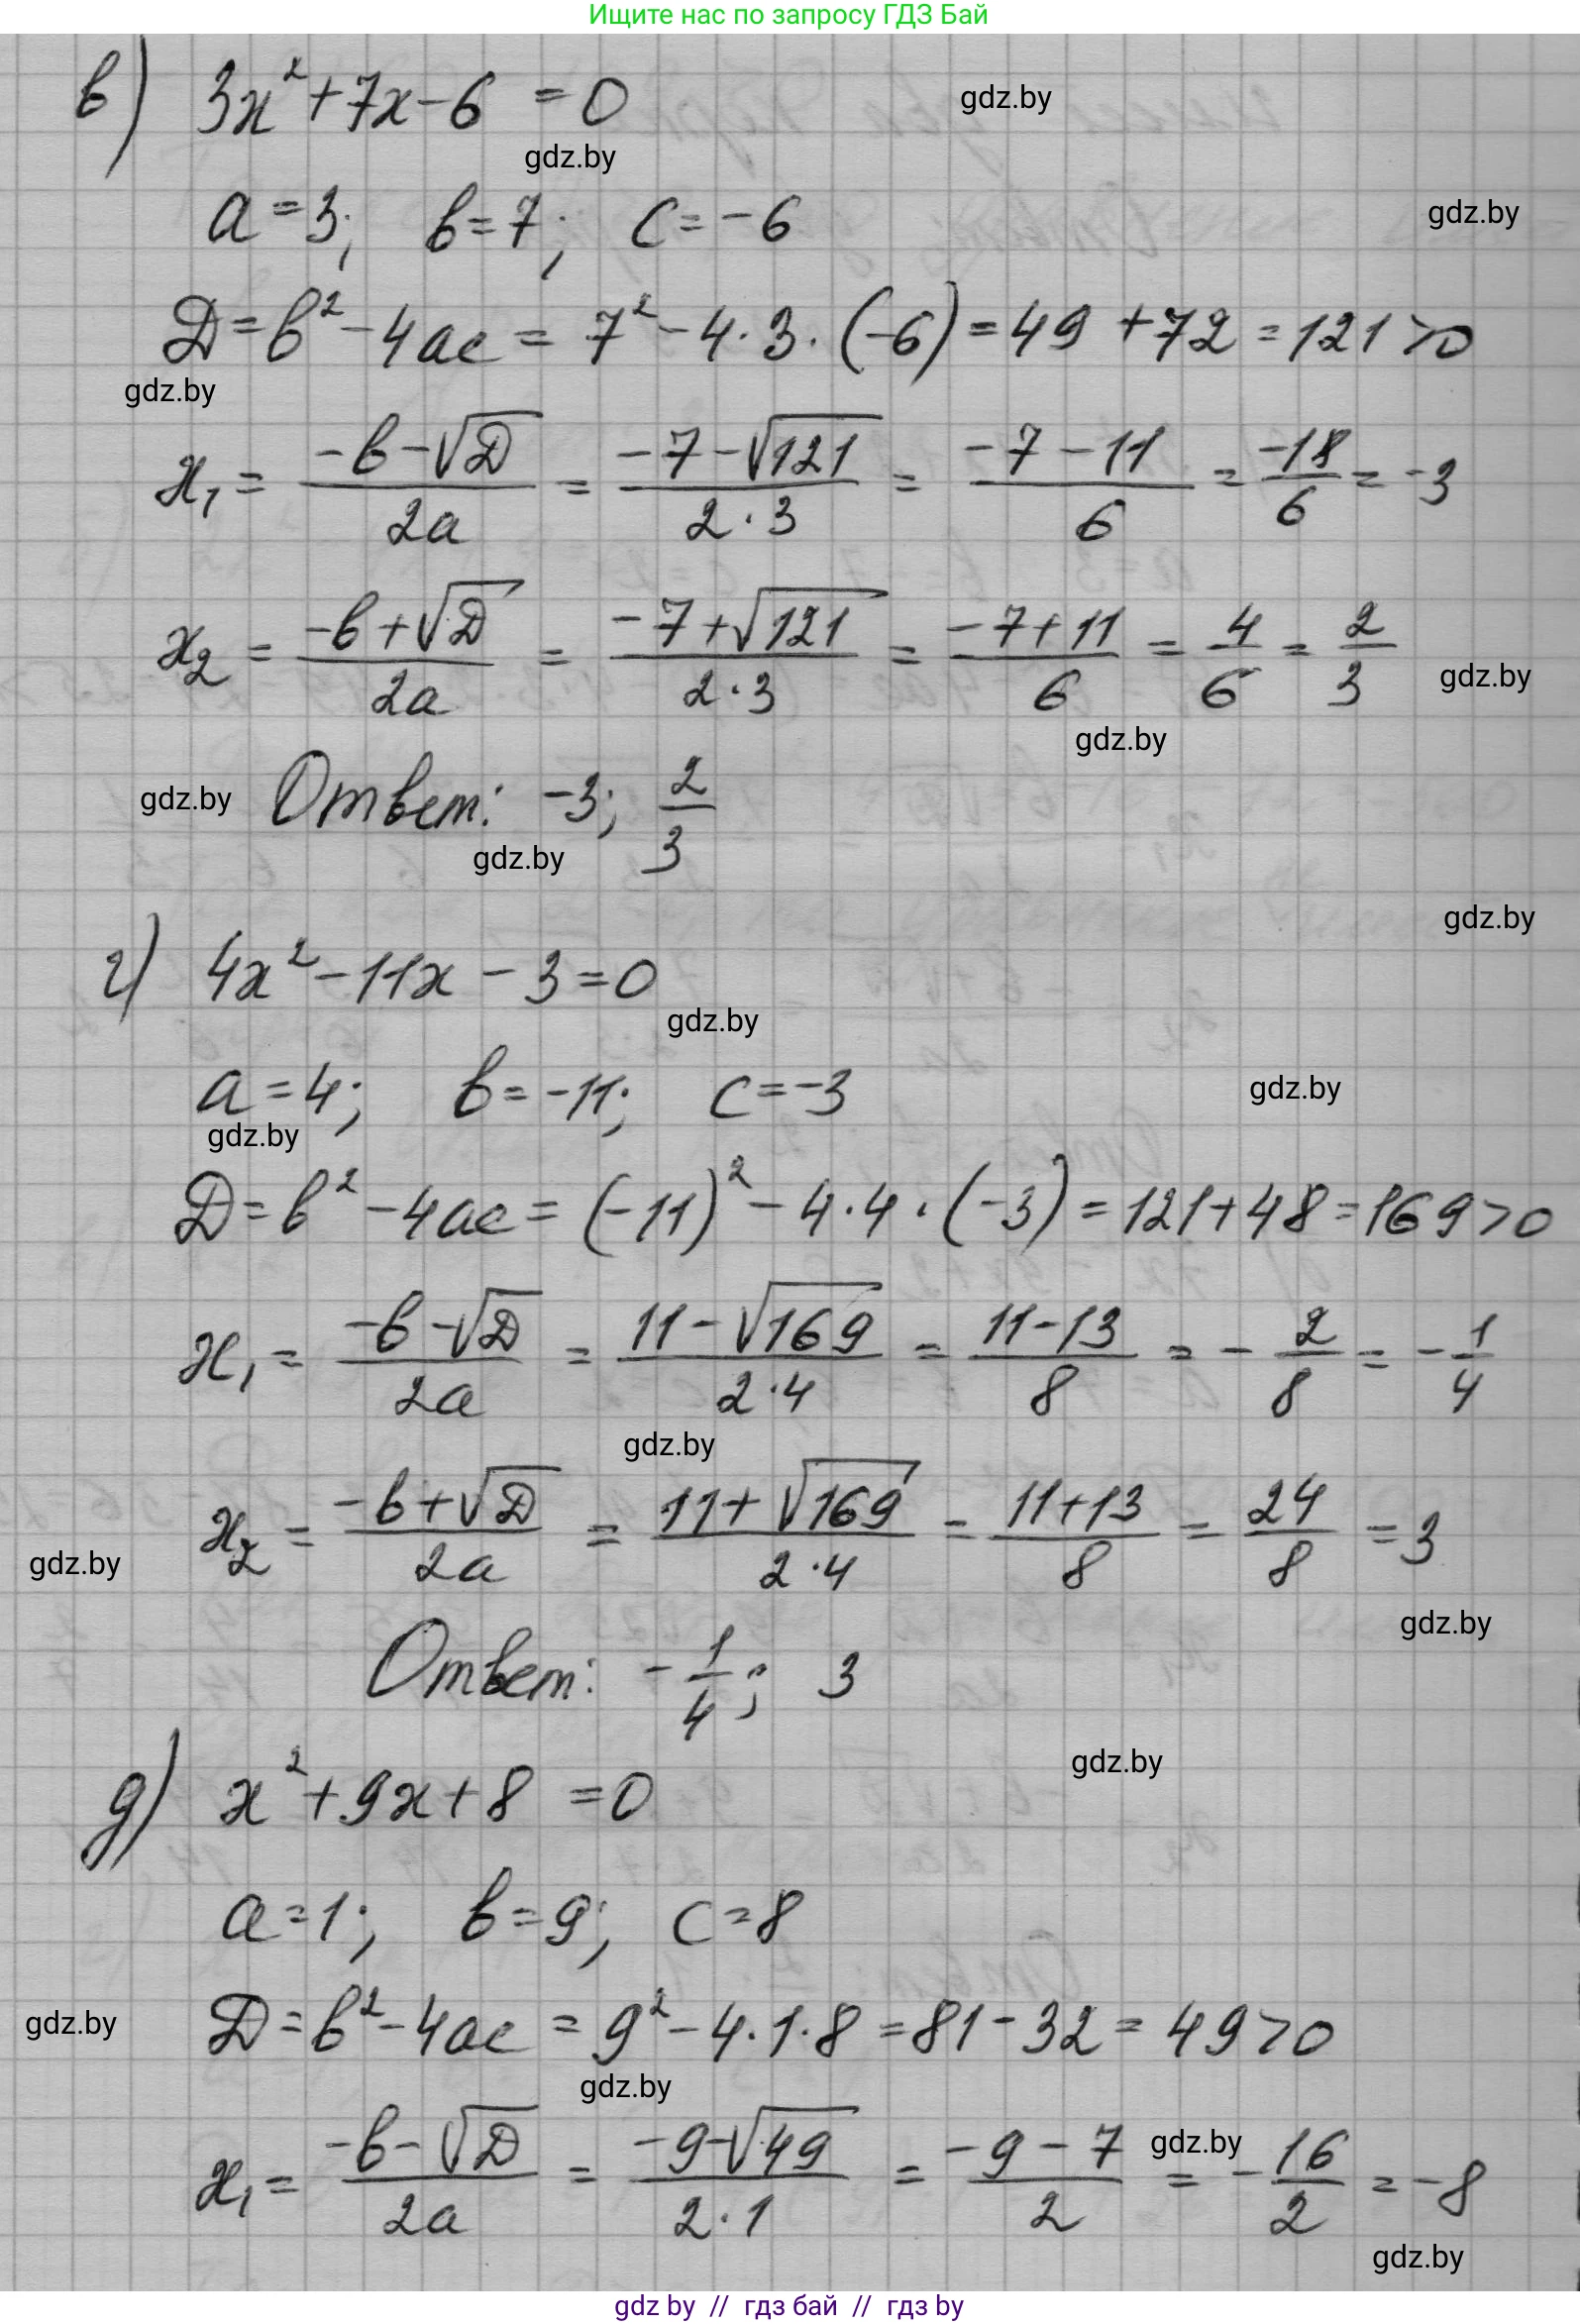 Ищите нас по запросу ГДЗ Бай
в) 3x² + 7x - 6 = 0
gdz.by
gdz.by
a = 3; b = 7; c = -6
gdz.by
D = b² - 4ac = 7² - 4 · 3 · (-6) = 49 + 72 = 121 > 0
gdz.by
x₁ = (-b - √D)/(2a) = (-7 - √121)/(2 · 3) = (-7 - 11)/6 = -18/6 = -3
x₂ = (-b + √D)/(2a) = (-7 + √121)/(2 · 3) = (-7 + 11)/6 = 4/6 = 2/3
gdz.by
gdz.by
gdz.by
Ответ: -3; 2/3
gdz.by
gdz.by
г) 4x² - 11x - 3 = 0
gdz.by
a = 4; b = -11; c = -3
gdz.by
gdz.by
D = b² - 4ac = (-11)² - 4 · 4 · (-3) = 121 + 48 = 169 > 0
x₁ = (-b - √D)/(2a) = (11 - √169)/(2 · 4) = (11 - 13)/8 = -2/8 = -1/4
gdz.by
x₂ = (-b + √D)/(2a) = (11 + √169)/(2 · 4) = (11 + 13)/8 = 24/8 = 3
gdz.by
gdz.by
Ответ: -1/4; 3
gdz.by
д) x² + 9x + 8 = 0
a = 1; b = 9; c = 8
gdz.by
D = b² - 4ac = 9² - 4 · 1 · 8 = 81 - 32 = 49 > 0
gdz.by
gdz.by
x₁ = (-b - √D)/(2a) = (-9 - √49)/(2 · 1) = (-9 - 7)/2 = -16/2 = -8
gdz.by
gdz by // гдз бай // гдз by